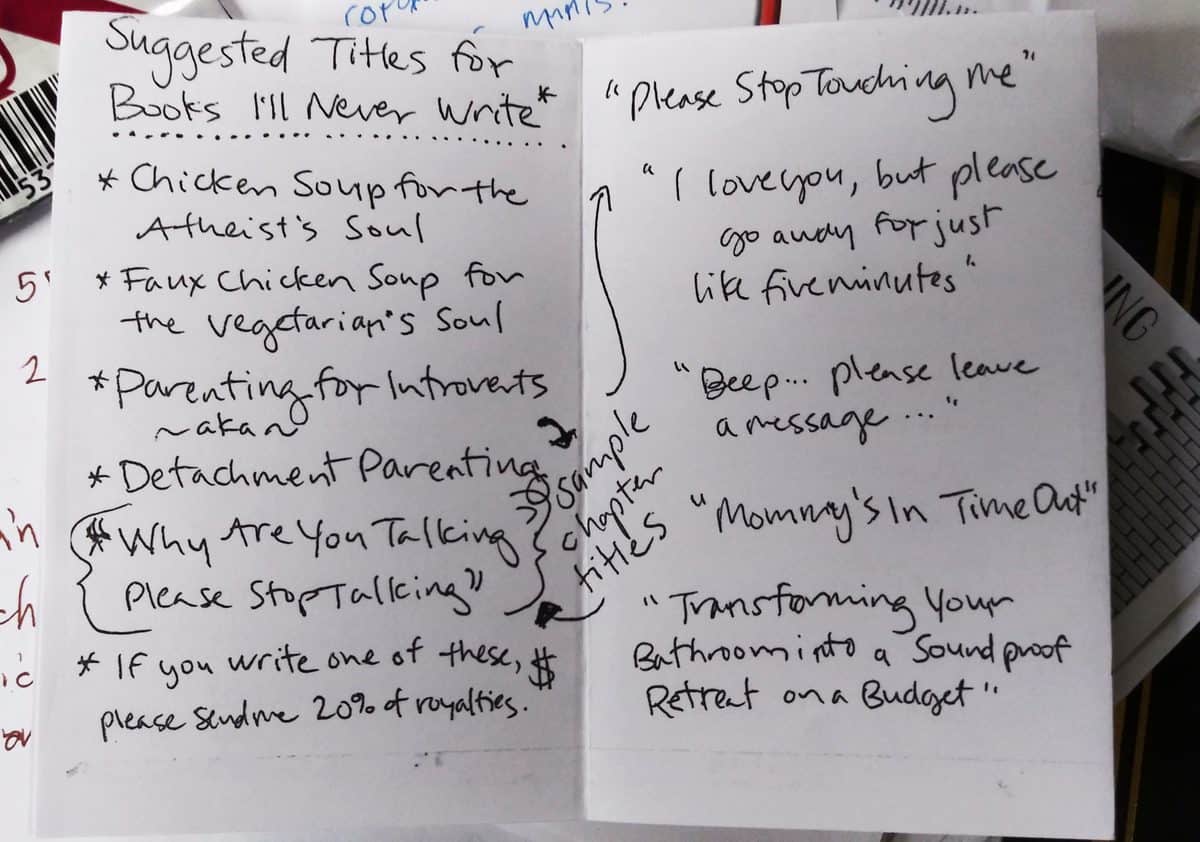 Suggested Titles for
Books I'll Never Write*
* Chicken Soup for the
Atheist's Soul
* Faux Chicken Soup for
the Vegetarian's Soul
* Parenting for Introverts
~aka~
* Detachment Parenting
* Why Are You Talking
Please Stop Talking"
* If you write one of these,
please send me 20% of royalties.
$
sample
chapter
titles
"Please Stop Touching Me"
"I love you, but please
go away for just
like five minutes"
"Beep... please leave
a message..."
"Mommy's In Time Out"
"Transforming Your
Bathroom into a Soundproof
Retreat on a Budget"
53
5
2
ch
ING